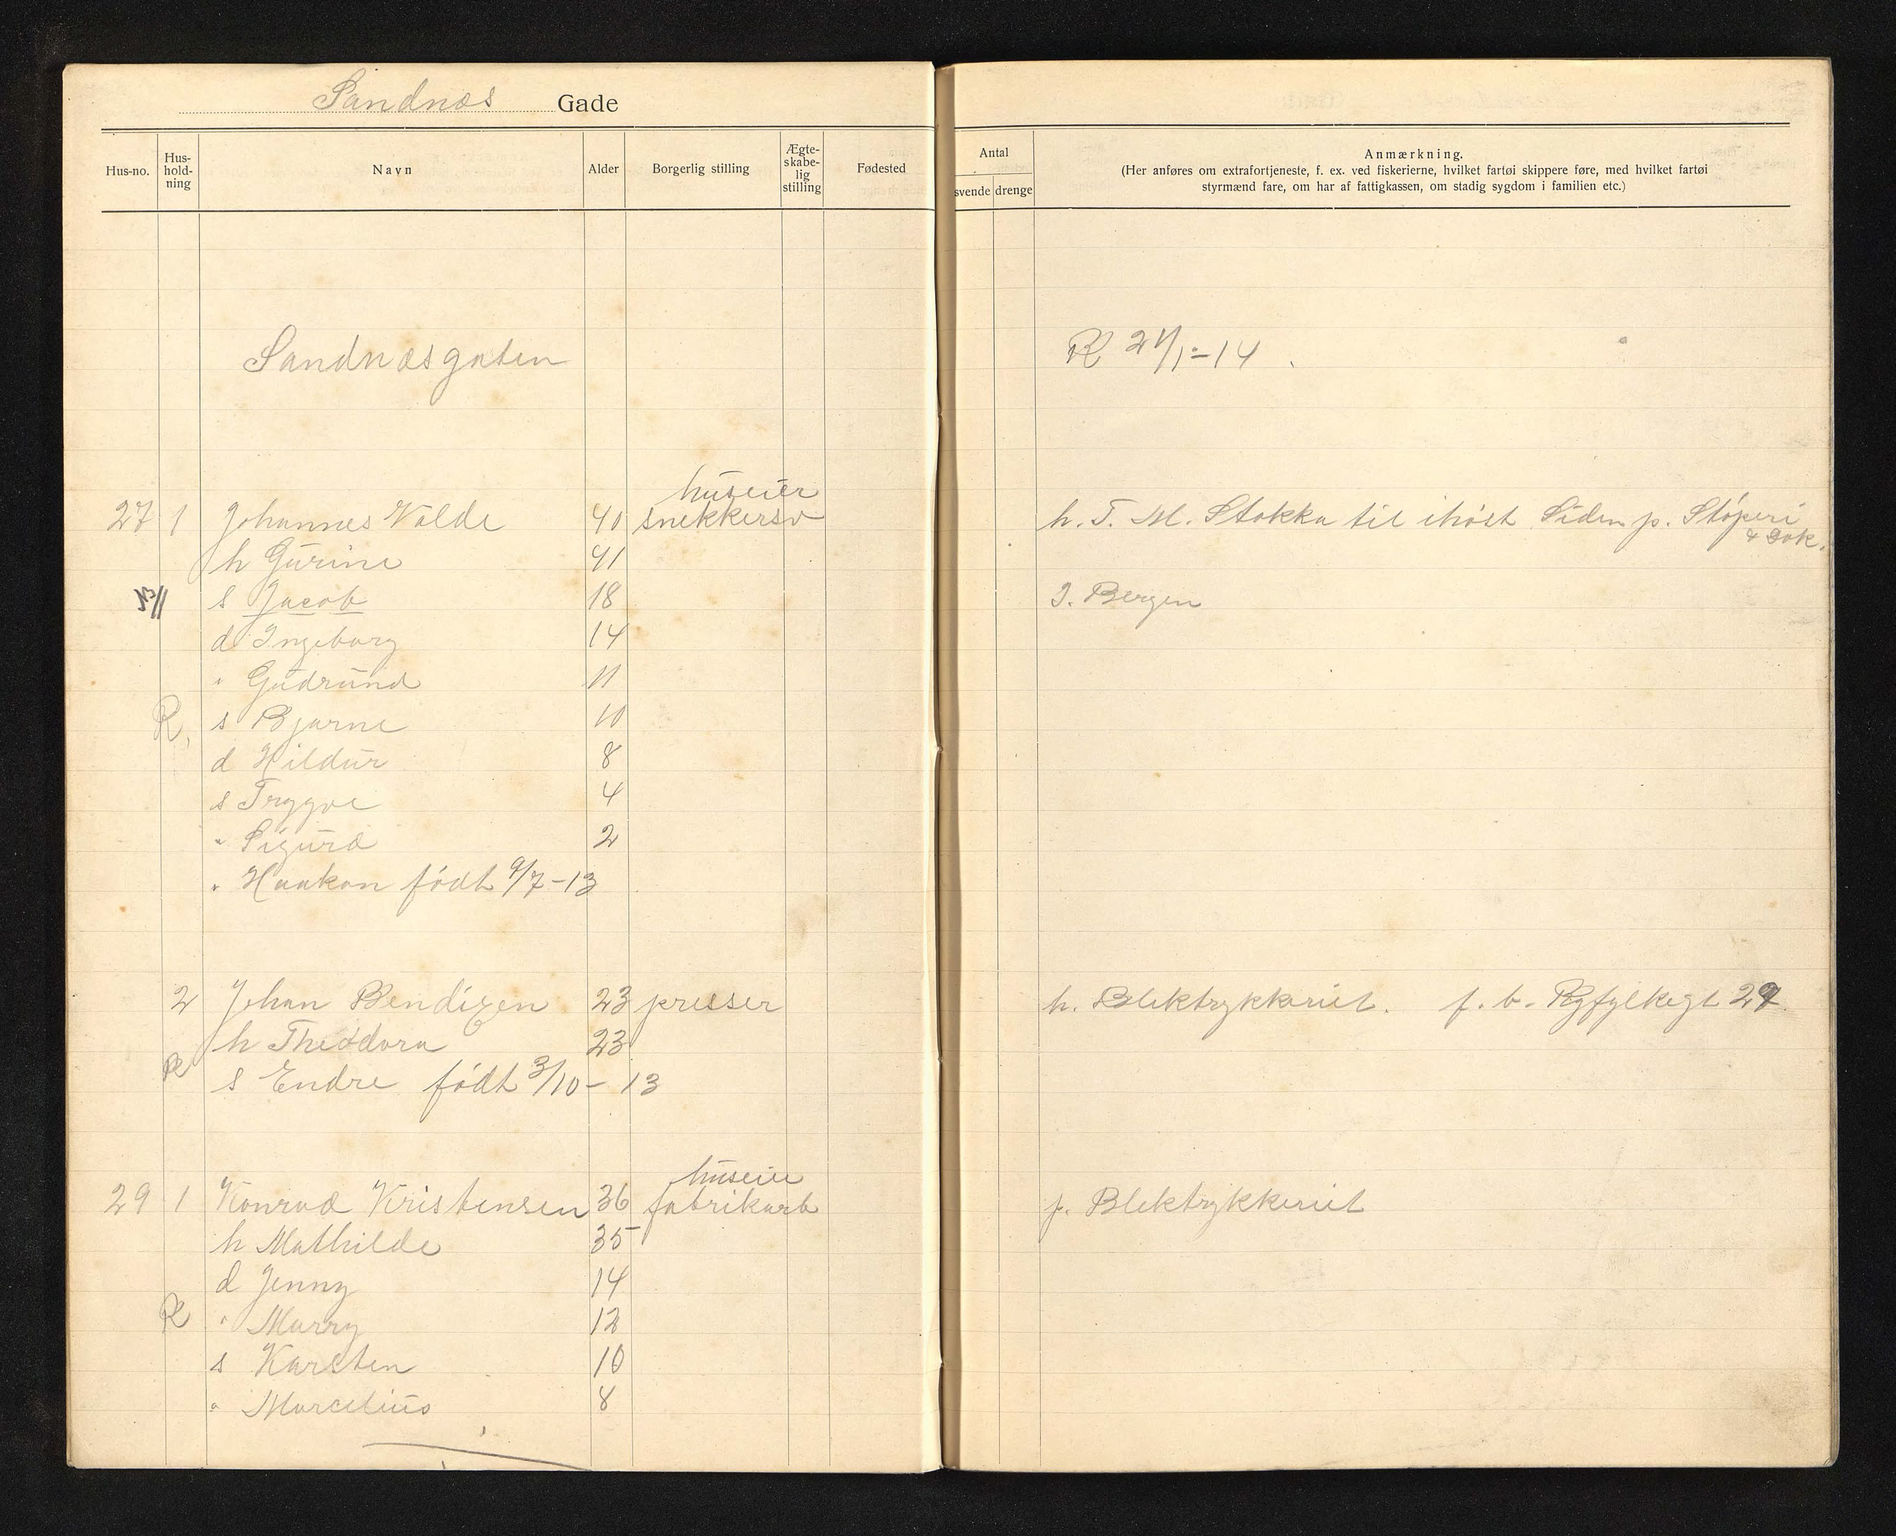 Sandnæs Gade
Hus-no. Hus-hold-ning Navn Alder Borgerlig stilling Ægte-skabe-lig stilling Fødested
Antal
svende drenge
Anmærkning.
(Her anføres om extrafortjeneste, f. ex. ved fiskerierne, hvilket fartøi skippere føre, med hvilket fartøi
styrmænd fare, om har af fattigkassen, om stadig sygdom i familien etc.)
Sandnæsgaten R /1-14
huseier
27 1 Johannes Valde 40 snekkersv h. T. M. Stokka til ihøst Siden p. Støperi
& Dok.
h Gurine 41
s Jacob 18 I. Bergen
d Ingeborg 14
" Gudrund 11
R. s Bjarne 10
d Hildur 8
s Trygve 4
" Sigurd 2
" Haakon født 9/7-13
2 Johan Bendixen 23 presser h. Blektrykkeriet. f. b. Ryfylkegt
h Theodora 23
R s Endre født 3/10-13
huseier
29 1 Konrad Kristensen 36 fabrikarb p. Blektrykkeriet
h Mathilde 35
d Jenny 14
R " Marry 12
s Karsten 10
" Marcelius 8